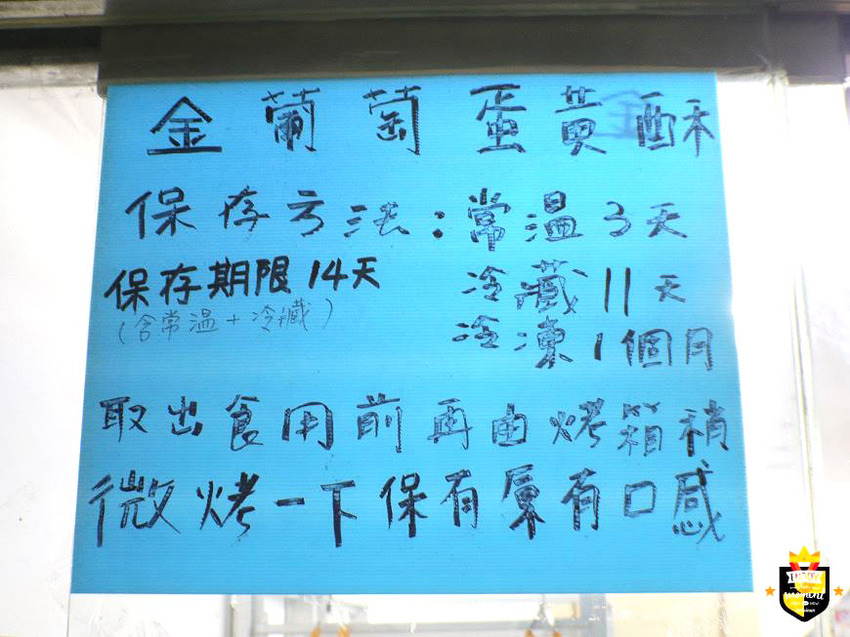 金葡萄蛋黃酥
保存方法:常溫3天
保存期限14天 冷藏11天
(含常溫+冷藏)
冷凍1個月
取出食用前再由烤箱稍
微烤一下保有原有口感
moment